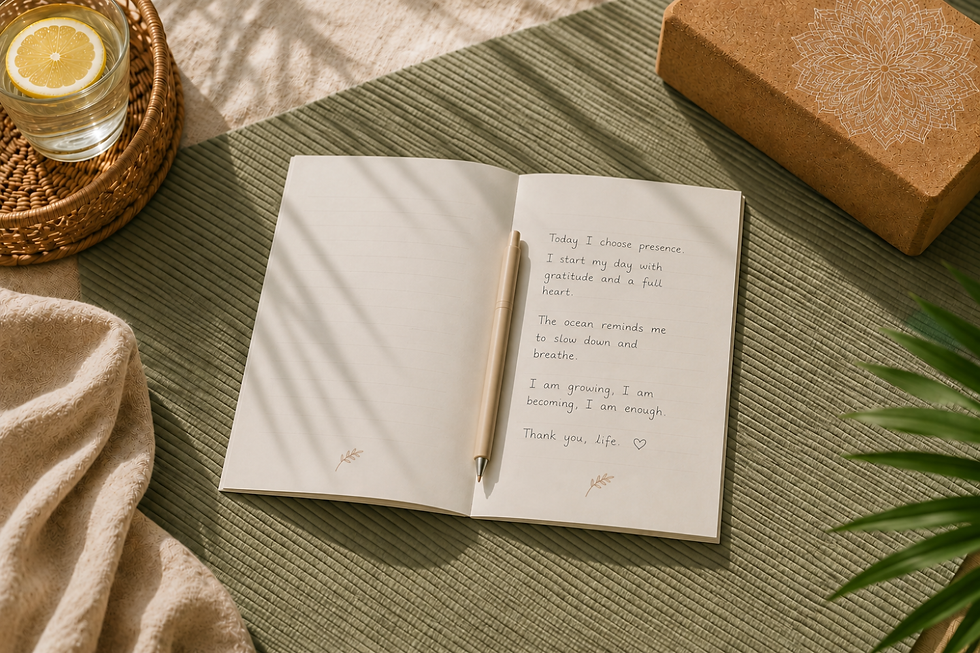 Today I choose presence.
I start my day with
gratitude and a full
heart.
The ocean reminds me
to slow down and
breathe.
I am growing, I am
becoming, I am enough.
Thank you, life. ♡